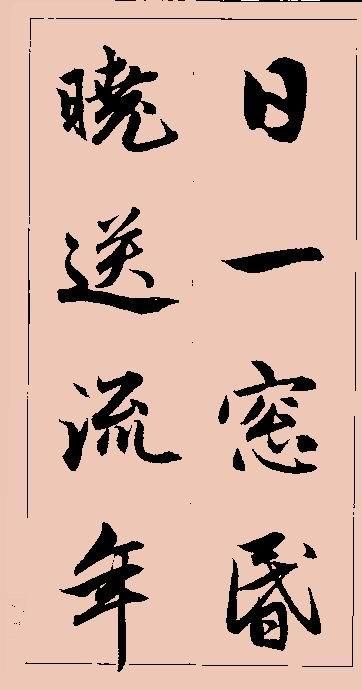 日一窓昏
曉送流年